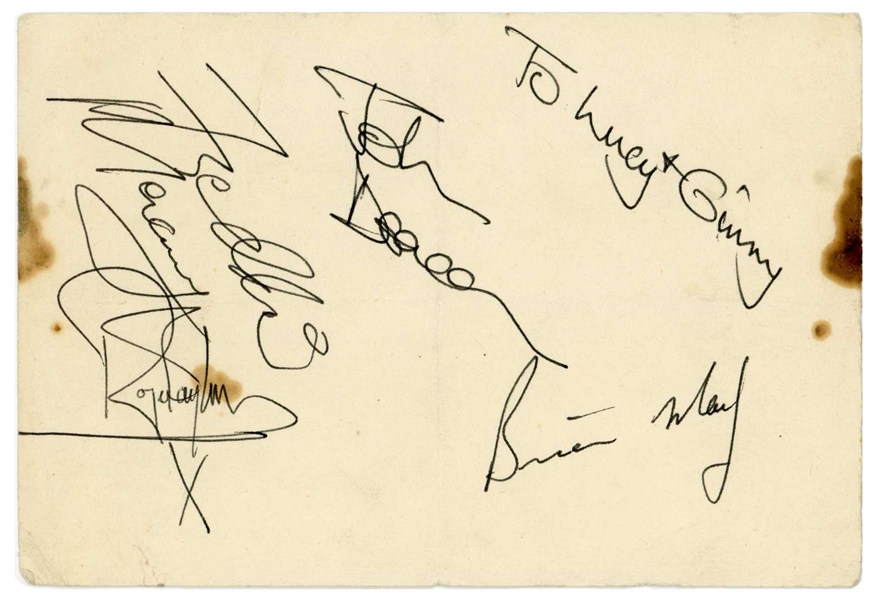 To Lucy + Ginny
Freddie
Mercury
John
Deacon
Roger Taylor
X
Brian May